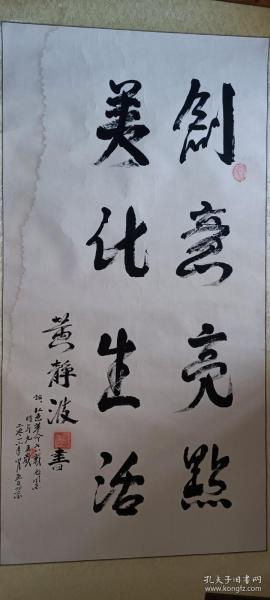 創意亮點
美化生活
黄静波 書
孔夫子旧书网